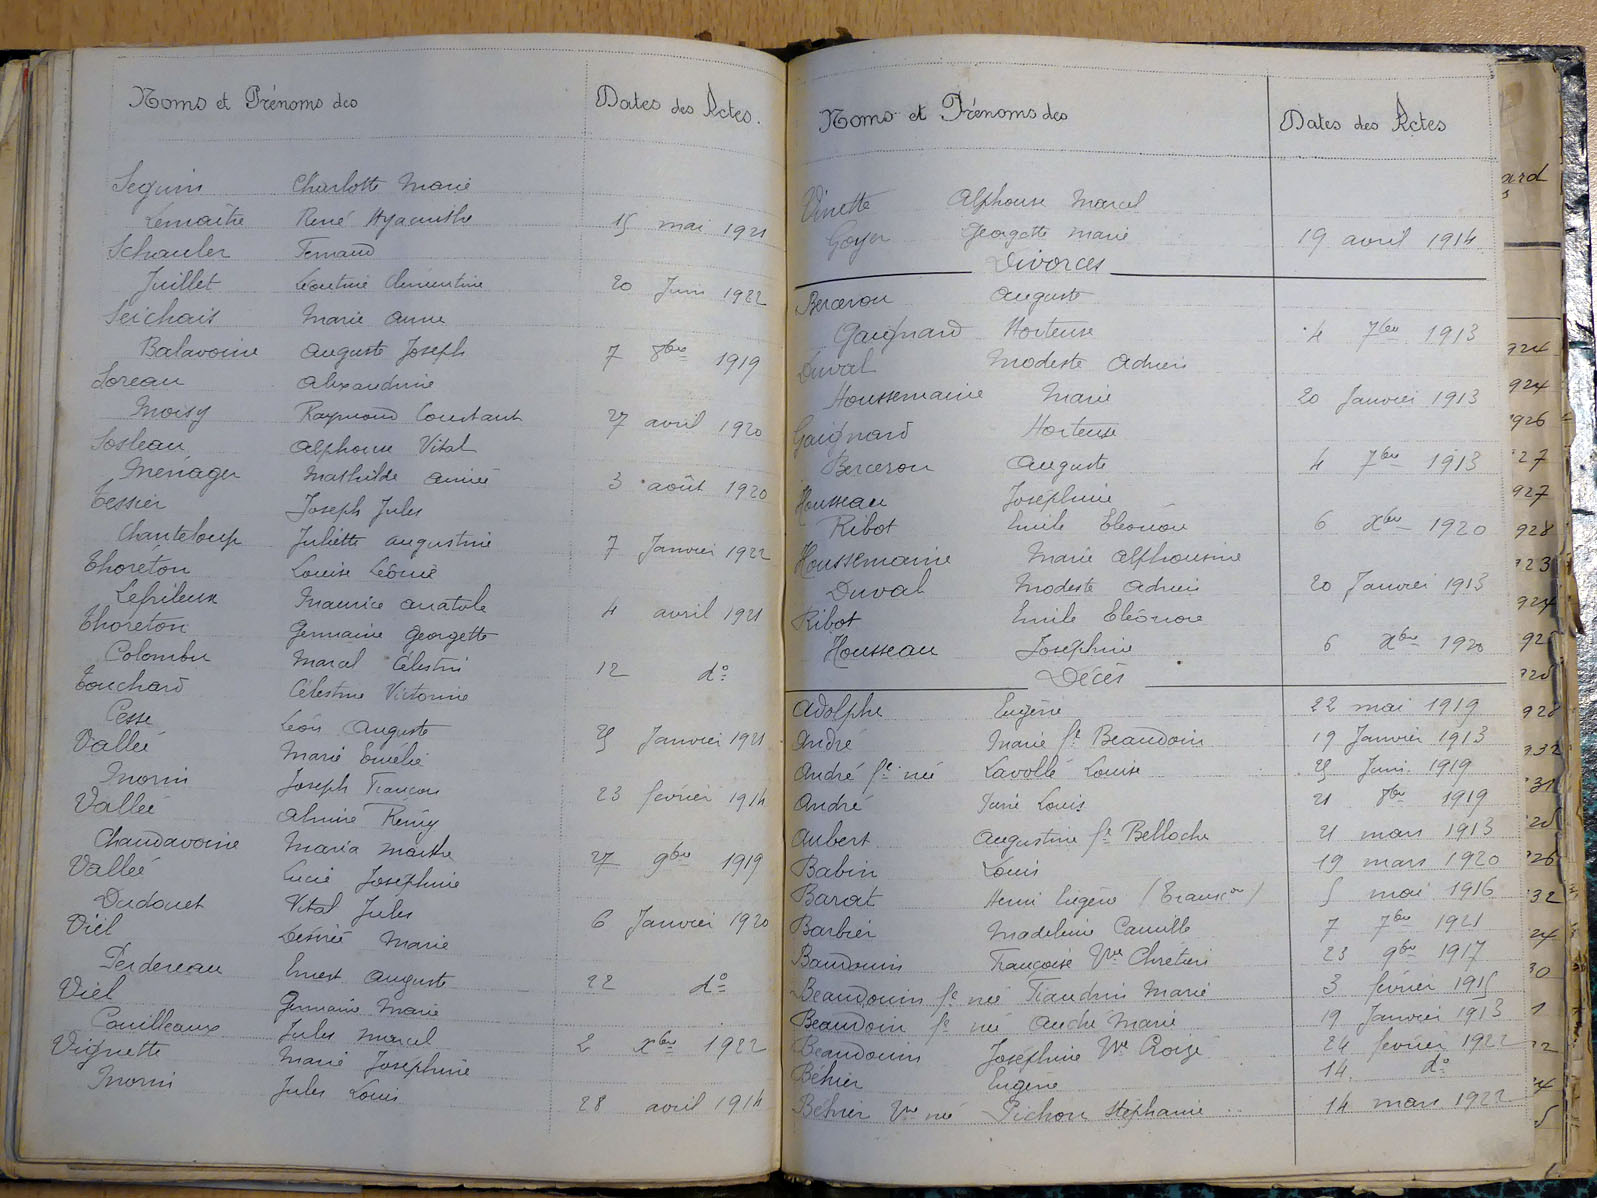 Noms et Prénoms des Dates des Actes.
Seguin Charlotte Marie
Lemaître René Hyacinthe 15 mai 1921
Schauler Fernand
Juillet Léontine Clémentine 20 Juin 1922
Seichais Marie Anne
Balavoine Auguste Joseph 7 8bre 1919
Soreau Alexandrine
Moisy Raymond Constant 27 avril 1920
Sosleau Alphonse Vital
Ménager Mathilde Aimée 3 août 1920
Tessier Joseph Jules
Chanteloup Juliette Augustine 7 Janvier 1922
Thoreton Louise Léonie
Lefrileux Maurice Anatole 4 avril 1921
Thoreton Germaine Georgette
Colombu Marcel Célestin 12 do
Touchard Célestine Victorine
Cosse Léon Auguste 25 Janvier 1921
Vallée Marie Emélie
Morin Joseph François 23 février 1914
Vallée Almire Rémy
Chaudavoine Maria Marthe 27 9bre 1919
Vallée Lucie Joséphine
Dudouet Vital Jules 6 Janvier 1920
Viel Désirée Marie
Perdereau Ernest Auguste 22 do
Viel Germaine Marie
Couilleaux Jules Marcel 2 Xbre 1922
Vignette Marie Joséphine
Morin Jules Louis 28 avril 1914
Noms et Prénoms des Dates des Actes
Vinette Alphonse Marcel
Goyer Georgette Marie 19 avril 1914
Divorces
Berceron Auguste
Gaignard Hortense 4 7bre 1913
Duval Modeste Adrien
Houssemaine Marie 20 Janvier 1913
Gaignard Hortense
Berceron Auguste 4 7bre 1913
Housseau Joséphine
Ribot Emile Eléonore 6 Xbre 1920
Houssemaine Marie Alphonsine
Duval Modeste Adrien 20 Janvier 1913
Ribot Emile Eléonore
Housseau Joséphine 6 Xbre 1920
Décès
Adolphe Eugène 22 mai 1919
André Marie fe Beaudoin 19 Janvier 1913
André fe née Lavollé Louise 25 Juin 1919
André Louis 21 8bre 1919
Aubert Augustine fe Belloche 21 mars 1913
Babin Louis 19 mars 1920
Barat Henri Eugène 5 mai 1916
Barbier Madeleine Camille 7 7bre 1921
Baudouin Françoise Vve Chrétien 23 9bre 1917
Beaudouin fe née Tiaudrin Marie 3 février 1915
Beaudoin fe née André Marie 19 Janvier 1913
Beaudouin Joséphine Vve Crozé 24 février 1922
Béhier Eugène 14 do
Béhier Vve née Pichon Stéphanie 14 mars 1922